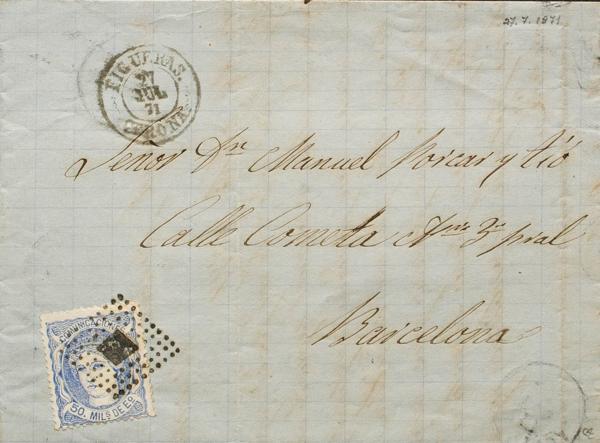 27.7.1871
FIGUERAS.
27
JUL
71
GERONA
Señor Dn Manuel Porcar y Tió
Calle Cometa Nº 3º pral
Barcelona
COMUNICACIONES
50. MILS DE Eº